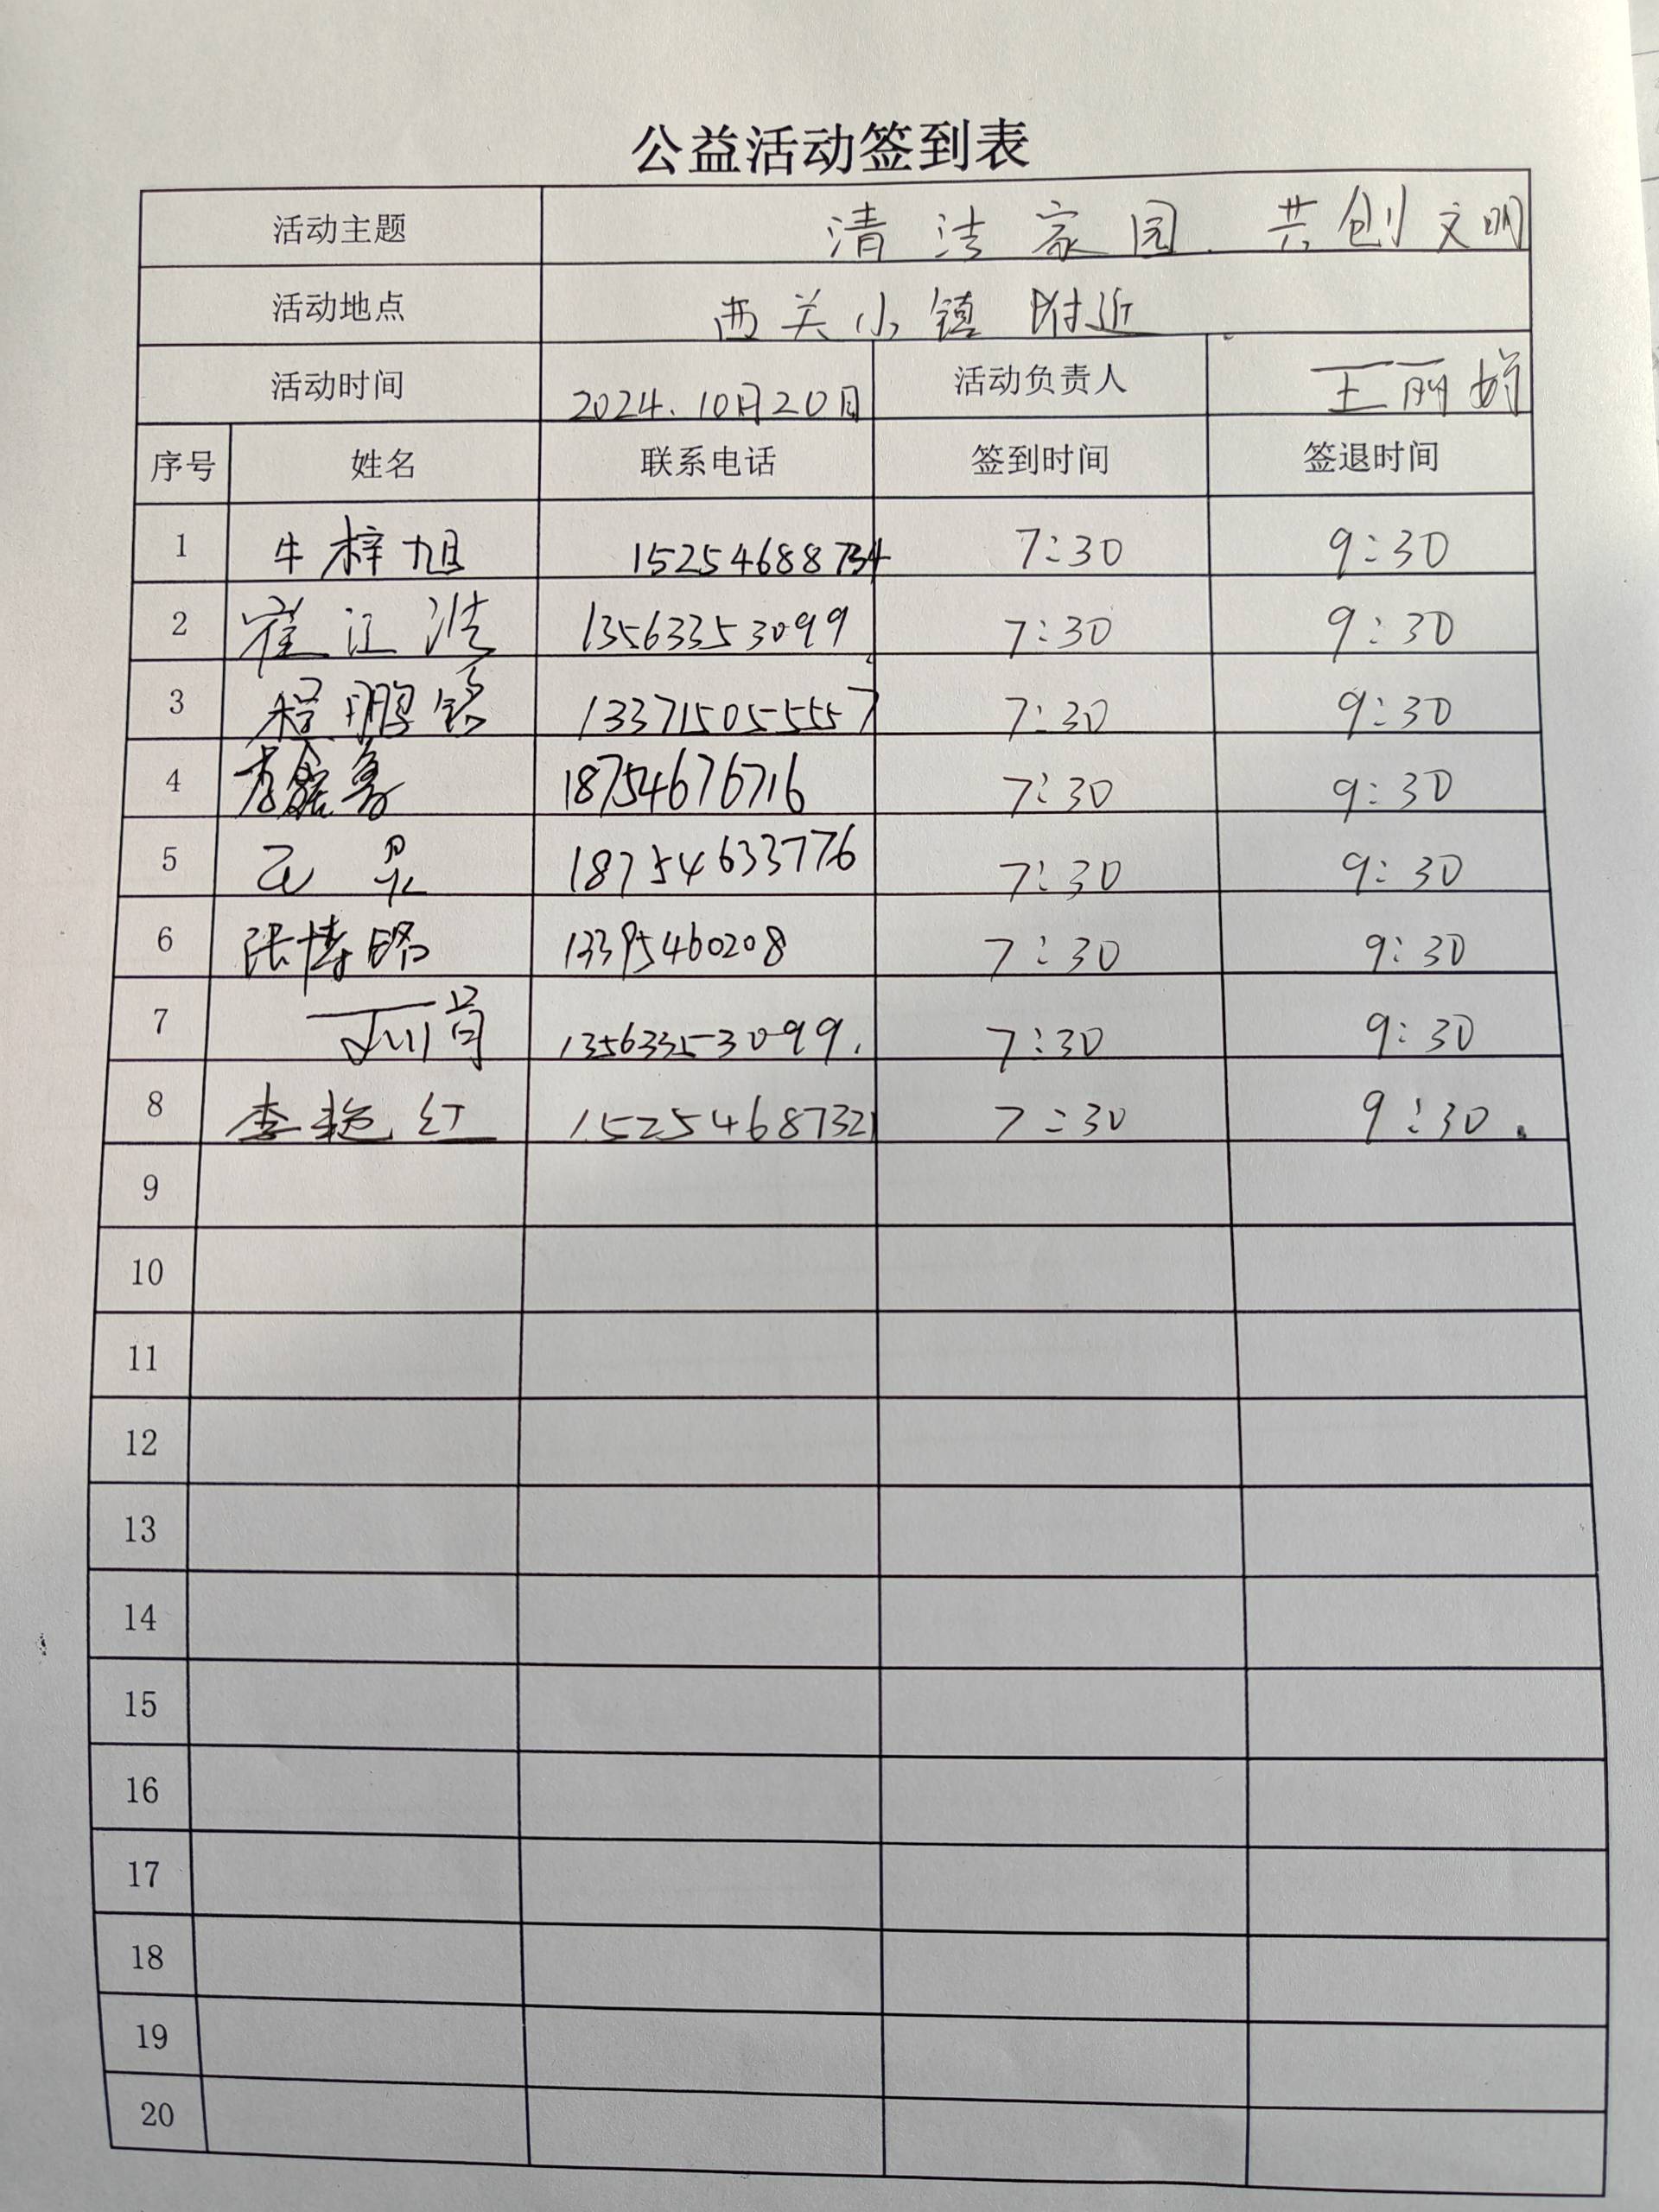 公益活动签到表
活动主题 清洁家园 共创文明
活动地点 西关小镇附近
活动时间 2024.10月20日 活动负责人 王丽娟
序号 姓名 联系电话 签到时间 签退时间
1 牛梓旭 15254688734 7:30 9:30
2 崔江浩 13563353099 7:30 9:30
3 程鹏铭 13371505557 7:30 9:30
4 18754676716 7:30 9:30
5 18754633776 7:30 9:30
6 张博皓 13395460208 7:30 9:30
7 13563353099. 7:30 9:30
8 李艳红 15254687321 7:30 9:30.
9
10
11
12
13
14
15
16
17
18
19
20